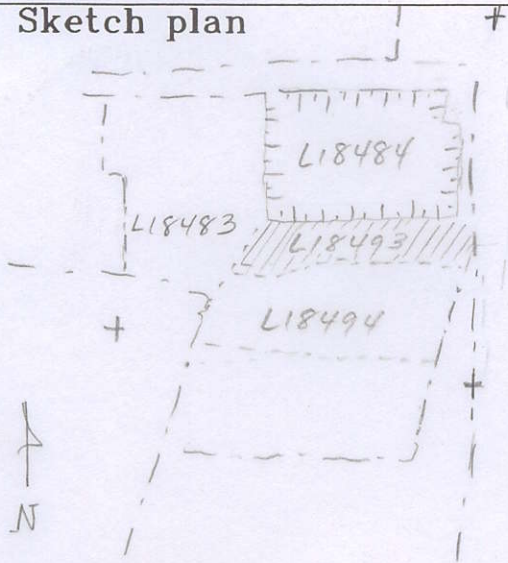 Sketch plan
L18484
L18483
L18493
L18494
N